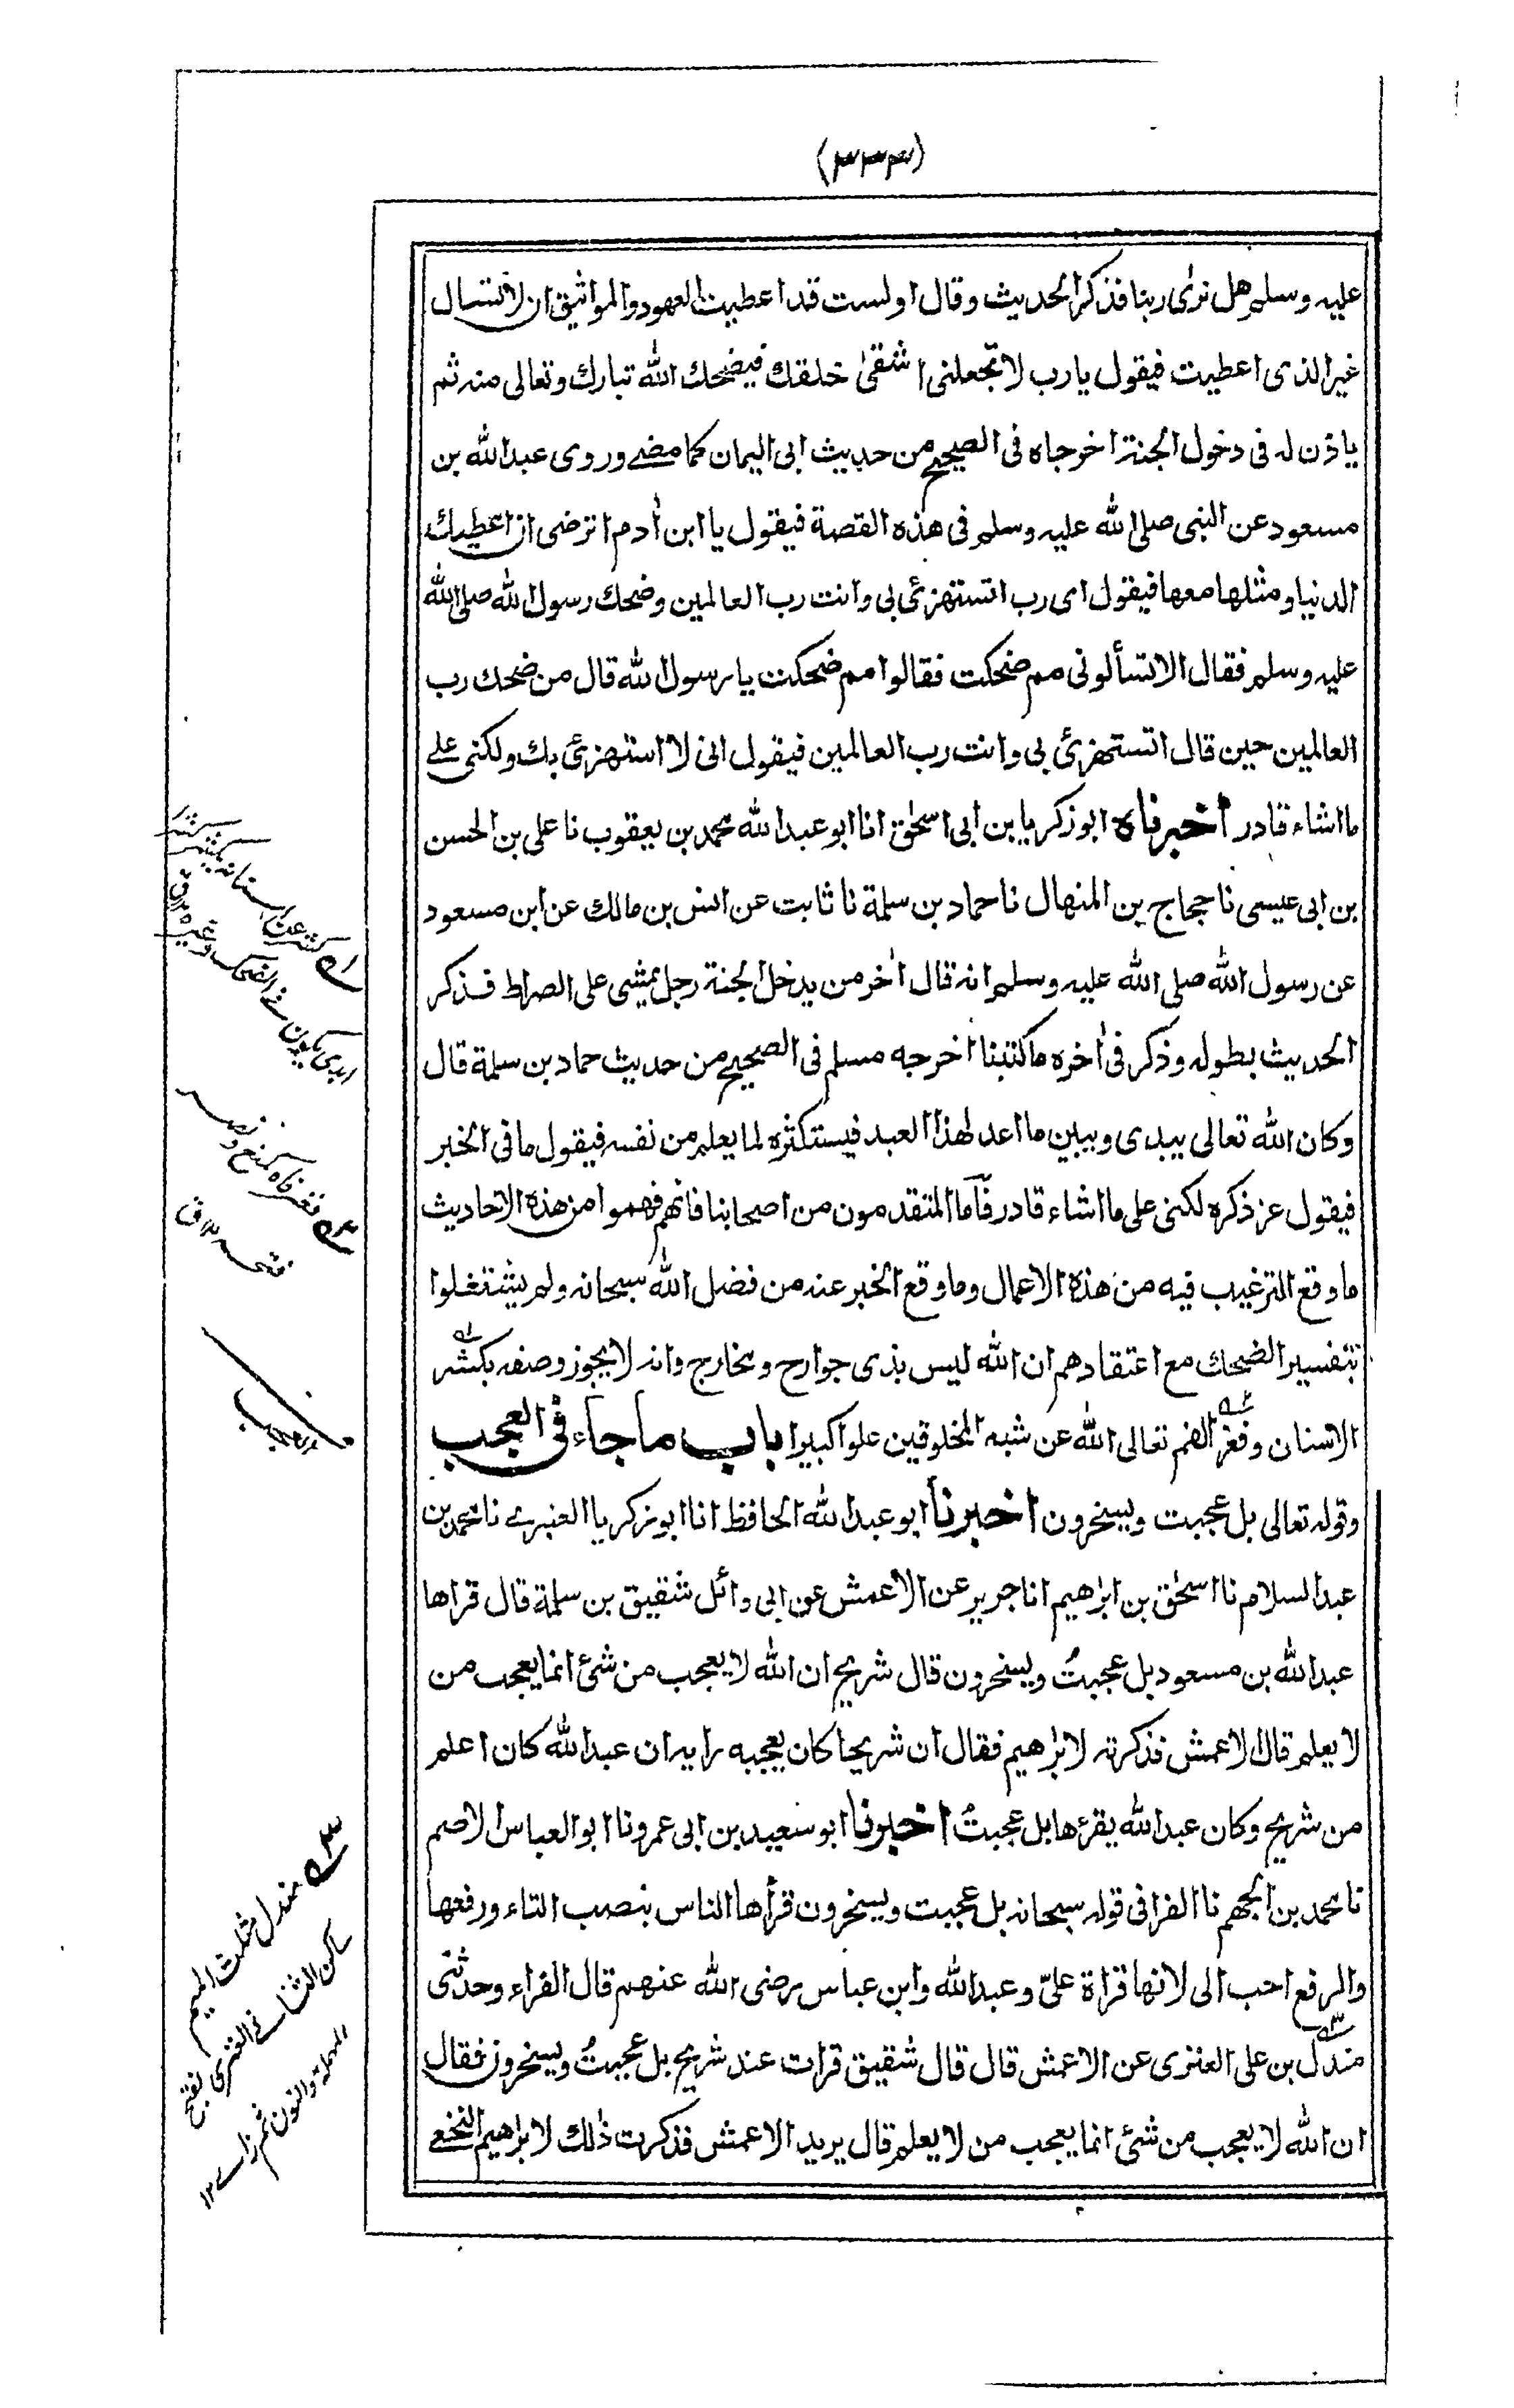 (٣٣٣)
عليه وسلم هل نرى ربنا فذكر الحديث وقال اولست قد اعطيت العهود والمواثيق ان لا تسال
غير الذى اعطيت فيقول يارب لا تجعلنى اشقى خلقك فيضحك الله تبارك وتعالى منه ثم
ياذن له فى دخول الجنة اخرجاه فى الصحيح من حديث ابى اليمان كما مضى وروى عبد الله بن
مسعود عن النبى صلى الله عليه وسلم فى هذه القصة فيقول يا ابن أدم اترضى ان اعطيك
الدنيا ومثلها معها فيقول اى رب اتستهزئ بى وانت رب العالمين وضحك رسول الله صلى الله
عليه وسلم فقال الا تسألونى مم ضحكت فقالوا مم ضحكت يا رسول الله قال من ضحك رب
العالمين حين قال اتستهزئ بى وانت رب العالمين فيقول انى لا استهزئ بك ولكنى على
ما اشاء قادر اخبرناه ابو زكريا بن ابى اسحٰق انا ابو عبد الله محمد بن يعقوب نا على بن الحسن
بن ابى عيسى نا حجاج بن المنهال نا حماد بن سلمة نا ثابت عن انس بن مالك عن ابن مسعود
عن رسول الله صلى الله عليه وسلم انه قال أخر من يدخل الجنة رجل يمشى على الصراط فذكر
الحديث بطوله وذكر فى أخره ما كتبنا اخرجه مسلم فى الصحيح من حديث حماد بن سلمة قال
وكان الله تعالى يبدى ويبين ما اعد لهذا العبد فيستكثره لما يعلم من نفسه فيقول ما فى الخبر
فيقول عز ذكره لكنى على ما اشاء قادر فاما المتقدمون من اصحابنا فانهم فهموا من هذه الاحاديث
ما وقع الترغيب فيه من هذه الاعمال وما وقع الخبر عنه من فضل الله سبحانه ولم يشتغلوا
بتفسير الضحك مع اعتقادهم ان الله ليس بذى جوارح ومخارج وانه لا يجوز وصفه بكشر
الاسنان وفغر الفم تعالى الله عن شبه المخلوقين علوا كبيرا باب ما جاء فى العجب
وقوله تعالى بل عجبت ويسخرون اخبرنا ابو عبد الله الحافظ انا ابو زكريا العنبرى نا محمد بن
عبد السلام نا اسحٰق بن ابراهيم انا جرير عن الاعمش عن ابى وائل شقيق بن سلمة قال قراها
عبد الله بن مسعود بل عجبتُ ويسخرون قال شريح ان الله لا يعجب من شئ انما يعجب من
لا يعلم قال الاعمش فذكرته لابراهيم فقال ان شريحا كان يعجبه رايه ان عبد الله كان اعلم
من شريح وكان عبد الله يقرءها بل عجبتُ اخبرنا ابو سعيد بن ابى عمرو نا ابو العباس الاصم
نا محمد بن الجهم نا الفرا فى قوله سبحانه بل عجبت ويسخرون قرأها الناس بنصب التاء ورفعها
والرفع احب الى لانها قراة علىّ وعبد الله وابن عباس رضى الله عنهم قال الفراء وحدثنى
مندل بن على العنزى عن الاعمش قال قال شقيق قرات عند شريح بل عجبتُ ويسخرون فقال
ان الله لا يعجب من شئ انما يعجب من لا يعلم قال يريد الاعمش فذكرت ذلك لابراهيم النخعى
له كشر عن اسنانه يكشر
ابدى يكون فى الضحك وغيره
٢ه فغر فاه كمنع ونصر
فتحه ١٢ ق
العجب
٣ه مندل مثلث الميم
ساكن الثانى العنزى بفتح
المهملة والنون ثم زاى ١٢